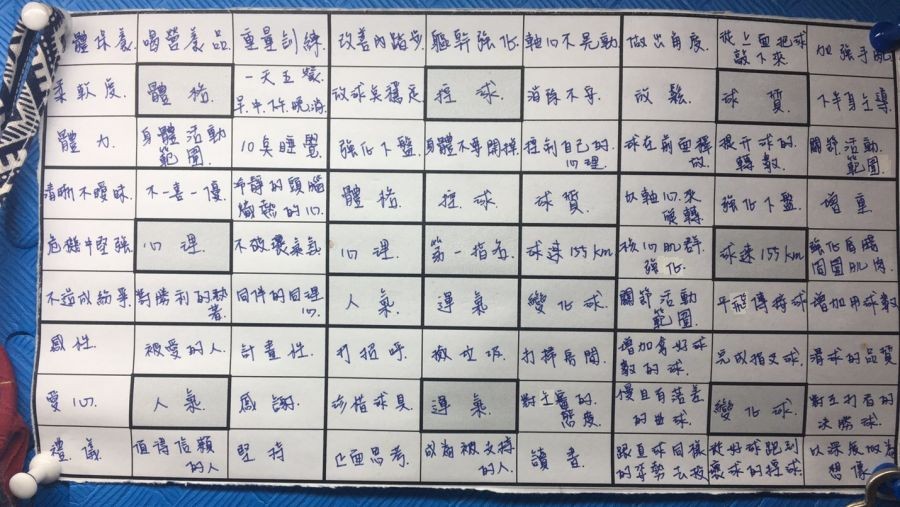 體保養 喝營養品 重量訓練 改善內踏步 軀幹強化 軸心不晃動 做出角度 從上面把球敲下來 加強手腕
柔軟度 體格 一天五餐 早中下午晚消 放球點穩定 控球 消除不安 放鬆 球質 下半身主導
體力 身體活動範圍 10點睡覺 強化下盤 身體不專開掉 控制自己的心理 球在前面釋放 提升球的轉數 關節活動範圍
清晰不曖昧 不一喜一優 冷靜的頭腦熾熱的心 體格 控球 球質 以軸心來旋轉 強化下盤 增重
危機中堅強 心理 不破壞氣氛 心理 第一指名 球速155km 核心肌群強化 球速155km 強化肩膀周圍肌肉
不造成紛爭 對勝利的執著 同伴的同理心 人氣 運氣 變化球 關節活動範圍 平飛傳接球 增加用球數
感性 被愛的人 計畫性 打招呼 撿垃圾 打掃房間 增加拿好球數的球 完成指叉球 滑球的品質
愛心 人氣 感謝 珍惜球具 運氣 對主審的態度 慢且有落差的曲球 變化球 對左打者的決勝球
禮儀 值得信賴的人 堅持 正面思考 成為被支持的人 讀書 跟直球同樣的姿勢去投 從好球跑到壞球的控球 以深度做為想像